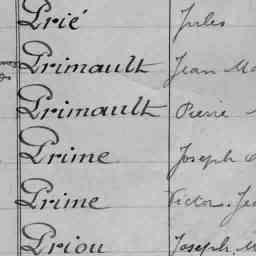 Prié Jules
Primault Jean
Primault Pierre
Prime Joseph
Prime Victor
Priou Joseph